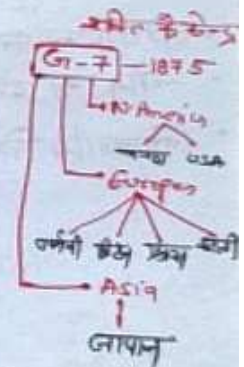 शक्ति के केन्द्र
G-7 — 1875
N. America
कनाडा USA
Europe
जर्मनी ब्रिटेन फ्रांस इटली
Asia
जापान